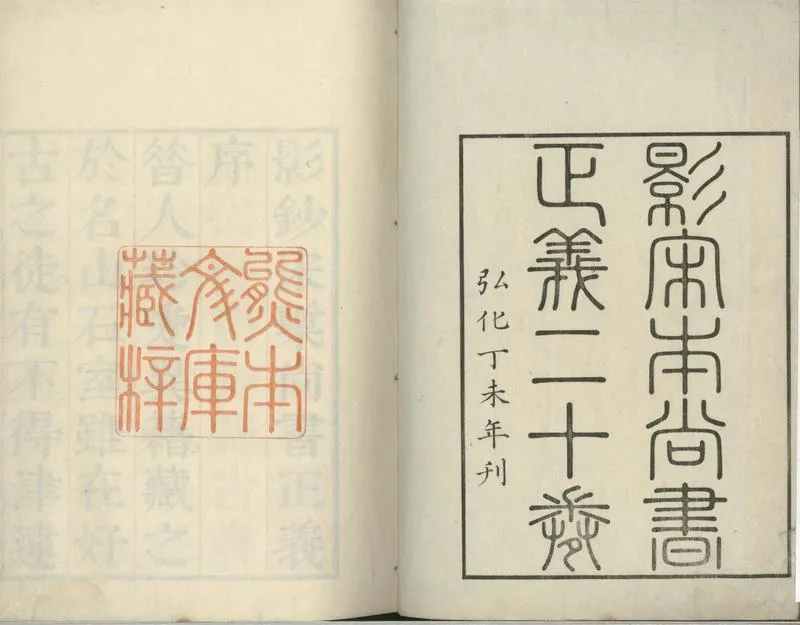 影宋本尚書
正義二十卷
弘化丁未年刊
熊本
文庫
藏梓
影鈔 尚書正義
序
咎人 籍藏之
於名山石室雖在好
古之徒有不得津逮